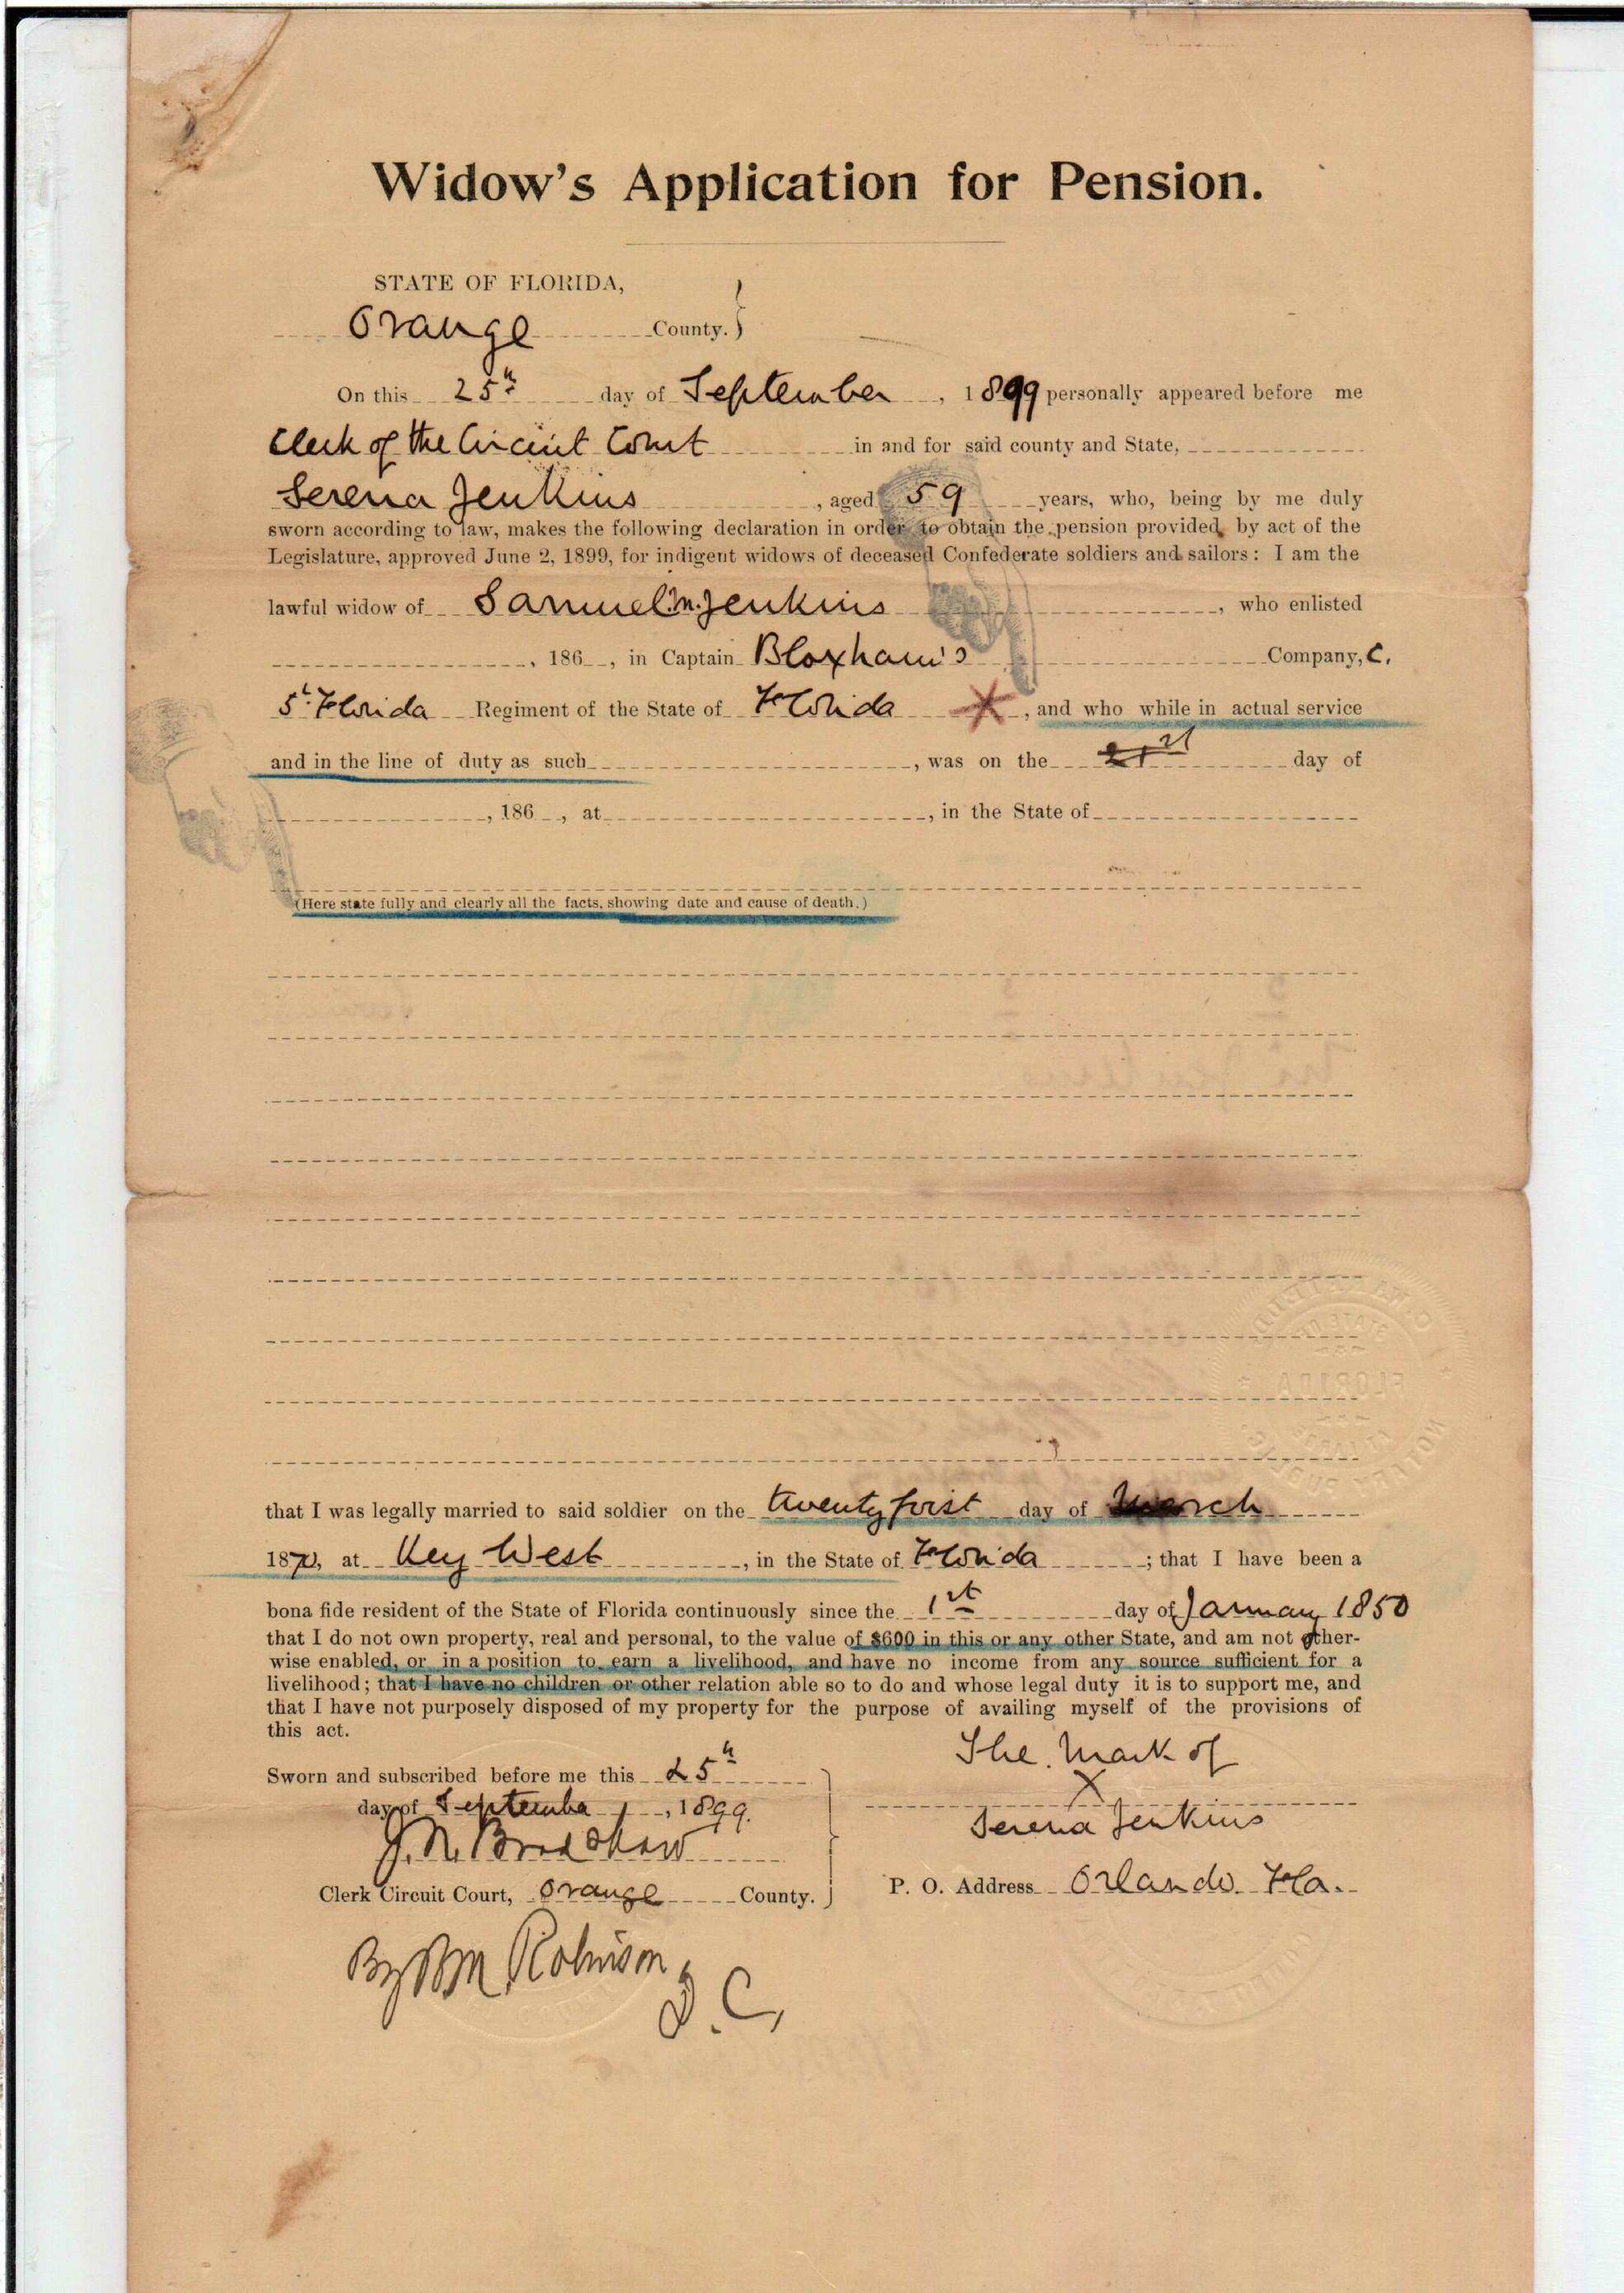 Widow's Application for Pension.
STATE OF FLORIDA,
Orange County. }
On this 25th day of September, 1899 personally appeared before me
Clerk of the Circuit Court in and for said county and State,
Serena Jenkins, aged 59 years, who, being by me duly
sworn according to law, makes the following declaration in order to obtain the pension provided by act of the
Legislature, approved June 2, 1899, for indigent widows of deceased Confederate soldiers and sailors: I am the
lawful widow of Samuel M. Jenkins, who enlisted
, 186 , in Captain Bloxham's Company, C.
5th Florida Regiment of the State of Florida, and who while in actual service
and in the line of duty as such , was on the 21st day of
, 186 , at , in the State of
(Here state fully and clearly all the facts, showing date and cause of death.)
C.
STATE OF
FLORIDA
AT LARGE
NOTARY PUBLIC
that I was legally married to said soldier on the twenty first day of March
1870, at Key West, in the State of Florida; that I have been a
bona fide resident of the State of Florida continuously since the 1st day of January 1850
that I do not own property, real and personal, to the value of $600 in this or any other State, and am not other-
wise enabled, or in a position to earn a livelihood, and have no income from any source sufficient for a
livelihood; that I have no children or other relation able so to do and whose legal duty it is to support me, and
that I have not purposely disposed of my property for the purpose of availing myself of the provisions of
this act.
The Mark of
Sworn and subscribed before me this 25th
X
day of September, 1899.
Serena Jenkins
J. N. Bradshaw
Clerk Circuit Court, Orange County.
P. O. Address Orlando Fla.
By B M Robinson,
D. C,